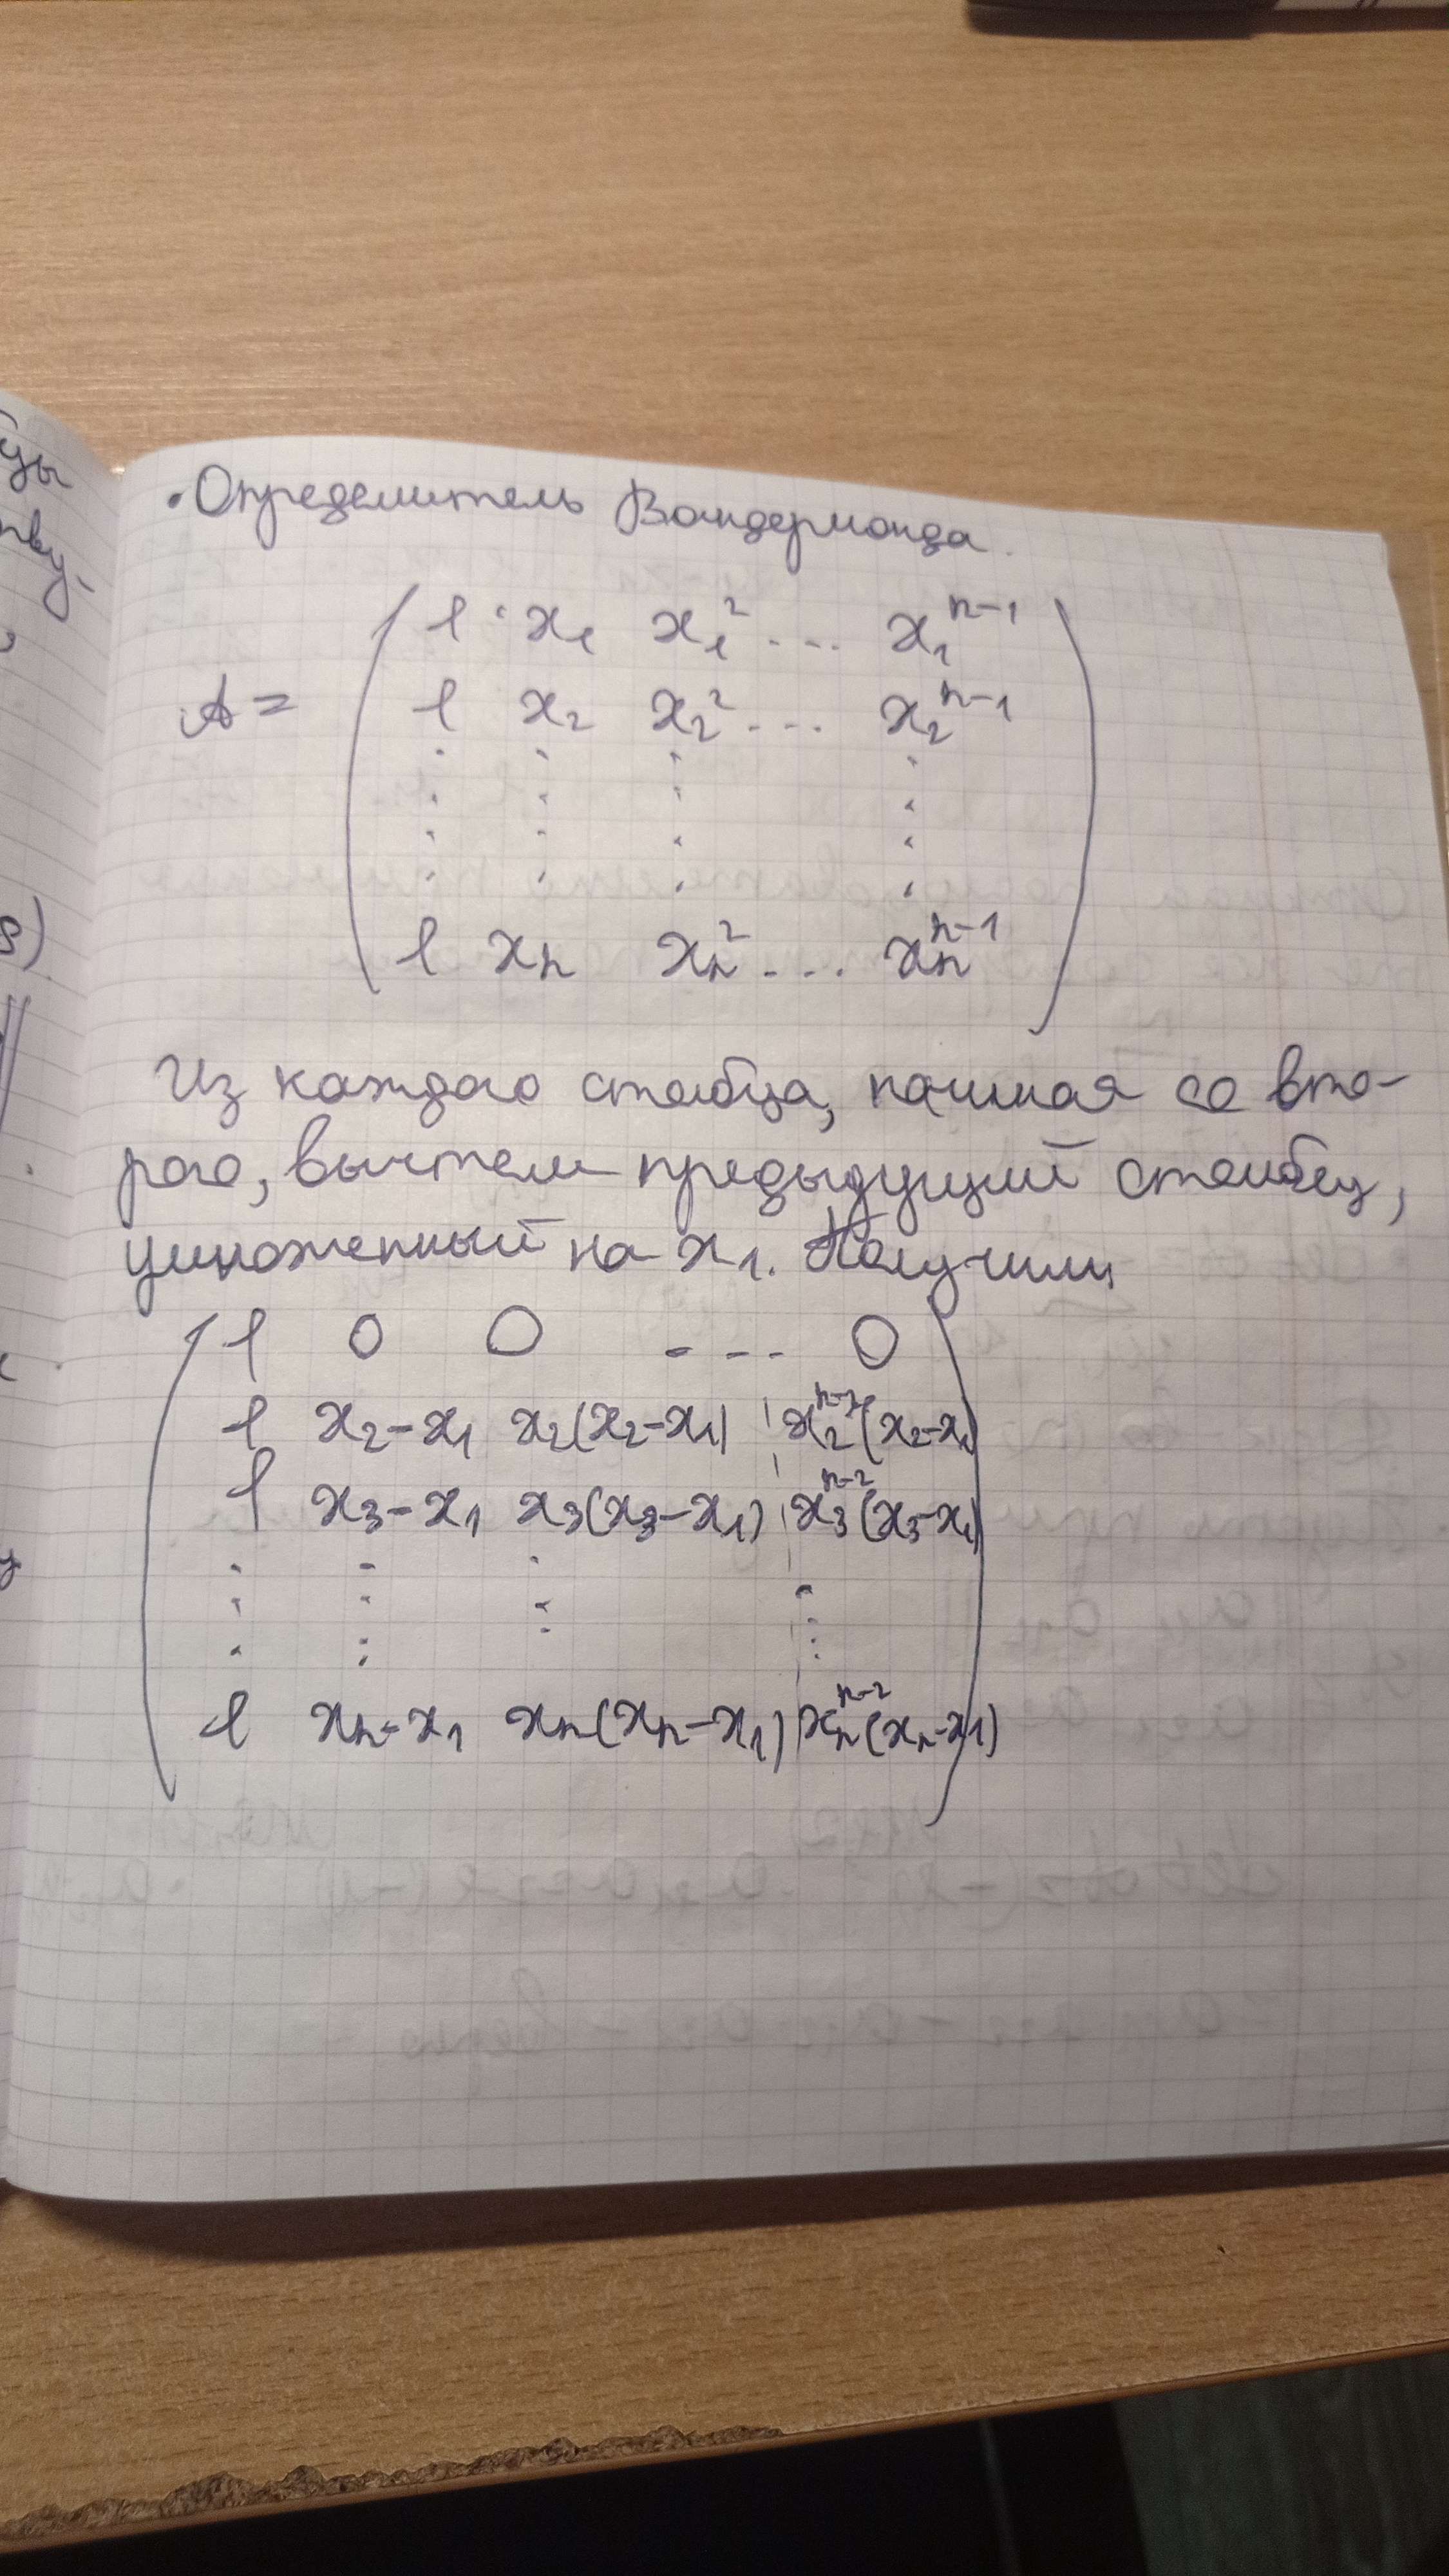 • Определитель Вандермонда.
A = ( 1 x₁ x₁² ... x₁ⁿ⁻¹ )
( 1 x₂ x₂² ... x₂ⁿ⁻¹ )
( 1 xₙ xₙ² ... xₙⁿ⁻¹ )
Из каждого столбца, начиная со вто-
рого, вычтем предыдущий столбец,
умноженный на x₁. Получим
( 1 0 0 --- 0 )
( 1 x₂-x₁ x₂(x₂-x₁) x₂ⁿ⁻²(x₂-x₁) )
( 1 x₃-x₁ x₃(x₃-x₁) x₃ⁿ⁻²(x₃-x₁) )
( 1 xₙ-x₁ xₙ(xₙ-x₁) xₙⁿ⁻²(xₙ-x₁) )